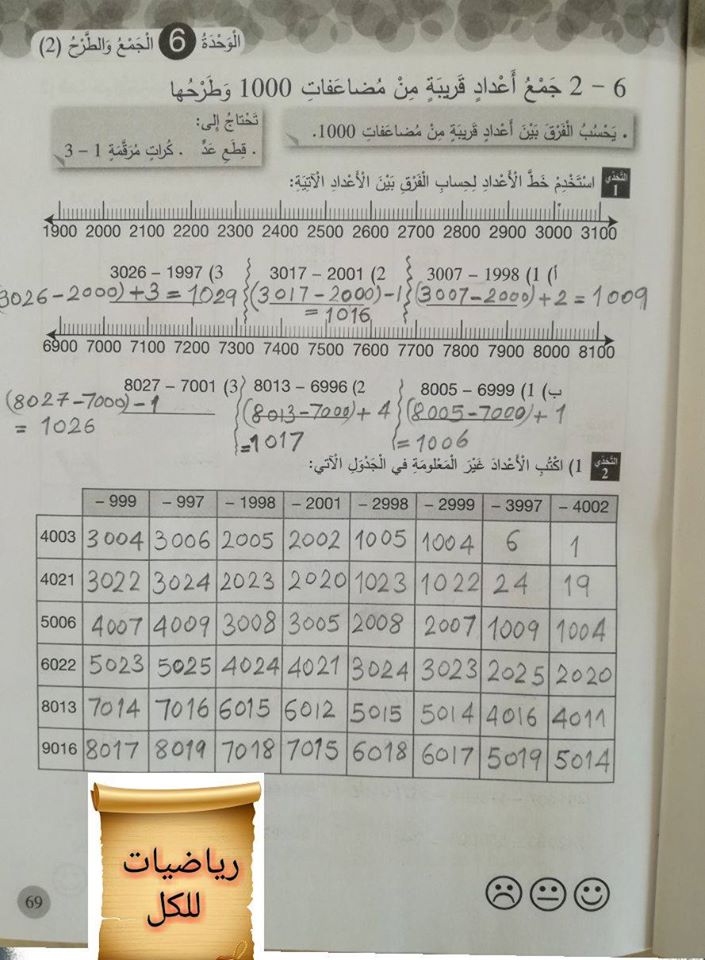 الْوَحْدَةُ 6 الْجَمْعُ وَالطَّرْحُ (2)
6 – 2 جَمْعُ أَعْدادٍ قَريبَةٍ مِنْ مُضاعَفاتِ 1000 وَطَرْحُها
. يَحْسُبُ الْفَرْقَ بَيْنَ أَعْدادٍ قَريبَةٍ مِنْ مُضاعَفاتِ 1000.
تَحْتاجُ إلى:
. قِطَعِ عَدٍّ . كُراتٍ مُرَقَّمَةٍ 1 – 3
التَّحَدّي 1 اسْتَخْدِمْ خَطَّ الْأَعْدادِ لِحِسابِ الْفَرْقِ بَيْنَ الْأَعْدادِ الْآتِيَةِ:
1900 2000 2100 2200 2300 2400 2500 2600 2700 2800 2900 3000 3100
أ) 1) 3007 – 1998 2) 3017 – 2001 3) 3026 – 1997
(3007-2000)+2=1009 (3017-2000)-1 (3026-2000)+3=1029
=1016
6900 7000 7100 7200 7300 7400 7500 7600 7700 7800 7900 8000 8100
ب) 1) 8005 – 6999 2) 8013 – 6996 3) 8027 – 7001
(8005-7000)+1 (8013-7000)+4 (8027-7000)-1
=1006 =1017 =1026
التَّحَدّي 2 1) اكْتُبِ الْأَعْدادَ غَيْرَ الْمَعْلومَةِ في الْجَدْوَلِ الْآتي:
– 999 – 997 – 1998 – 2001 – 2998 – 2999 – 3997 – 4002
4003 3004 3006 2005 2002 1005 1004 6 1
4021 3022 3024 2023 2020 1023 1022 24 19
5006 4007 4009 3008 3005 2008 2007 1009 1004
6022 5023 5025 4024 4021 3024 3023 2025 2020
8013 7014 7016 6015 6012 5015 5014 4016 4011
9016 8017 8019 7018 7015 6018 6017 5019 5014
رياضيات
للكل
69